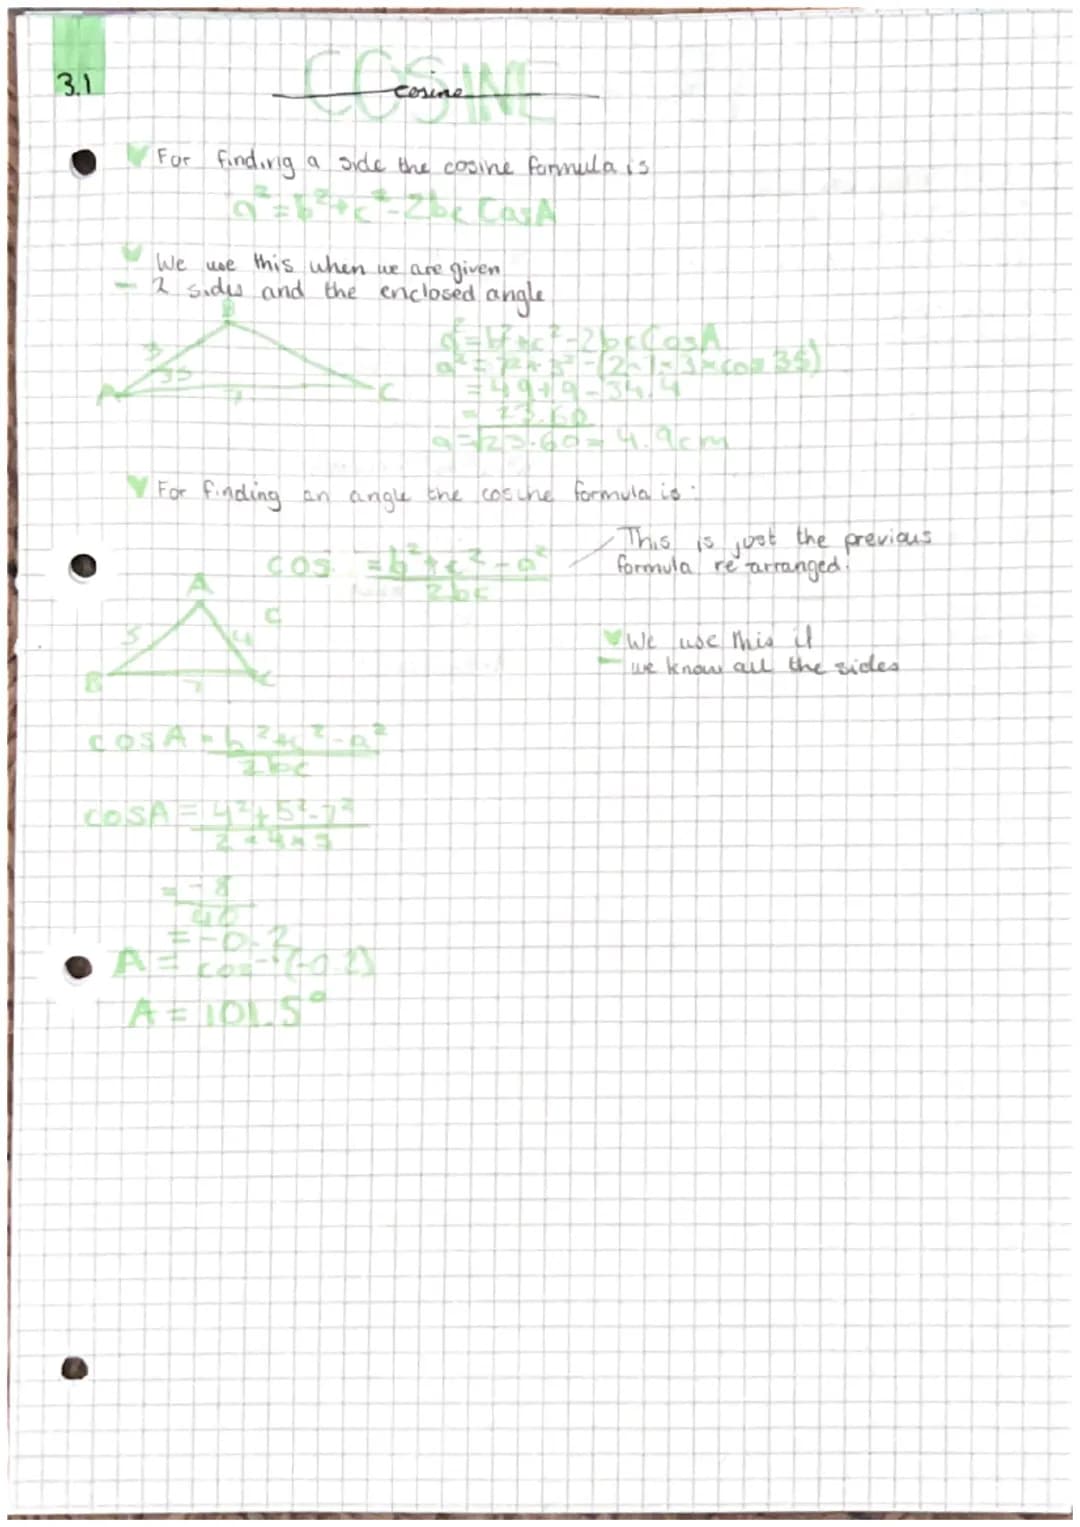 3.1
COSINE
cosine
For finding a side the cosine formula is
a² = b² + c² - 2bc CosA
We use this when we are given
- 2 sides and the enclosed angle
B
3
35
A
7
C
a² = b² + c² - 2bc CosA
= 49 + 9 - 34.4
= 23.60
a = √23.60 = 4.9cm
For finding an angle the cosine formula is:
cos = b² + c² - a²
2bc
This is just the previous
formula re arranged.
A
C
5
4
B
7
C
We use this if
- we know all the sides
cosA = b² + c² - a²
2bc
cosA = 4² + 5² - 7²
= -8
40
= -0.2
A = cos⁻¹(-0.2)
A = 101.5°